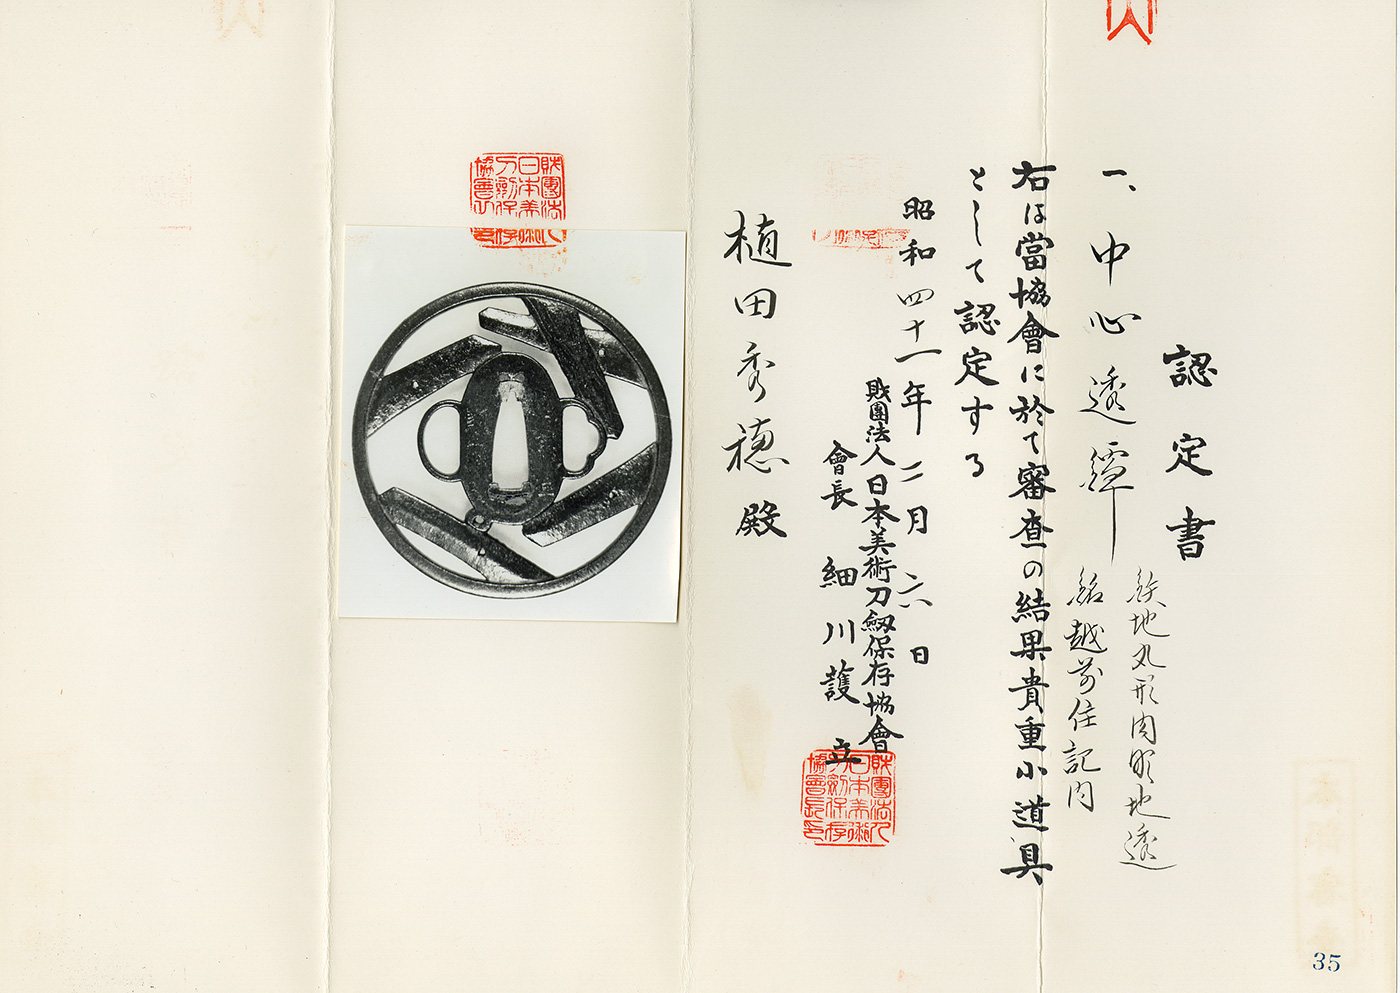 認定書
一、中心透鐔
鉄地丸形肉彫地透
銘越前住記内
右は當協會に於て審査の結果貴重小道具
として認定する
昭和四十一年二月六日
財團法人日本美術刀劔保存協會
會長 細川護立
財團法人日本美術刀劔保存協會長印
植田秀穂殿
財團法人日本美術刀劔保存協會印
35